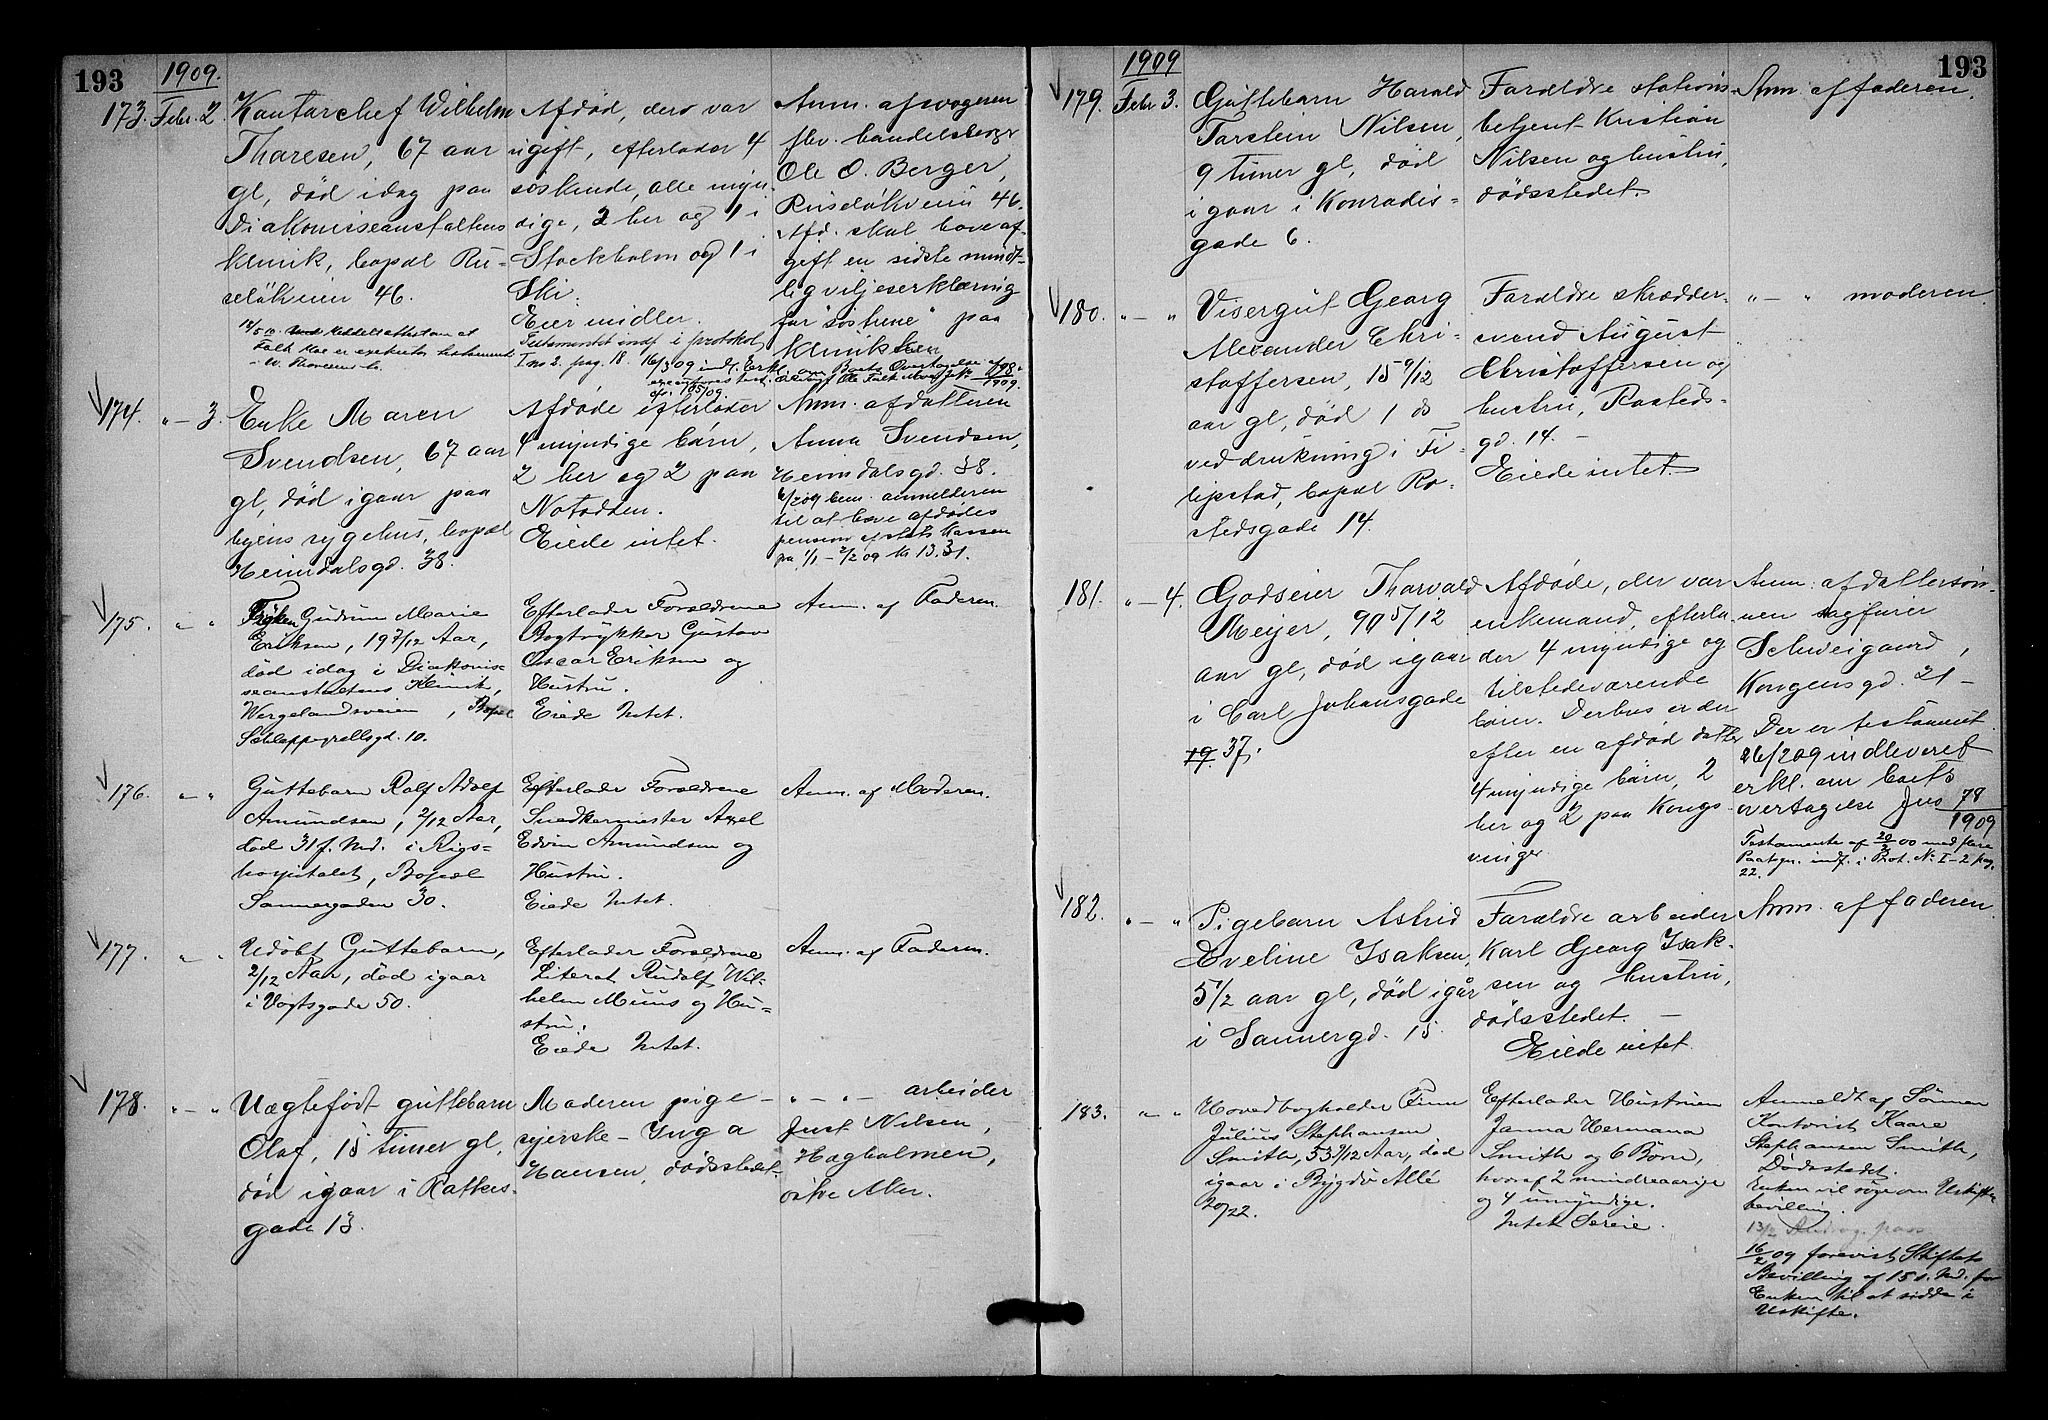 193
1909.
173. Febr. 2. Kontorchef Wilhelm
Thoresen, 67 aar
gl, død idag paa
Diakonisseanstaltens
klinik, bopæl Ru-
seløkveien 46.
Afdød, der var
ugift, efterlader 4
søskende, alle myn-
dige, 2 her og 1 i
Stockholm og 1 i
Ski.
Eier midler.
Testamentet indf. i protokol
I no 2. pag. 18. 16/3 09 indl. Erkl. om Boets Overtagelse
Anm. af svogeren
fhv. handelsborger
Ole O. Berger,
Ruseløkveien 46.
Afd. skal have af-
gift en sidste mundt-
lig viljeserklæring
for "søstrene" paa
klinikken
174. " - 3. Enke Maren
Svendsen, 67 aar
gl, død igaar paa
byens sygehus, bopæl
Heimdalsgd. 38.
Afdøde efterlader
4 myndige børn,
2 her og 2 paa
Notodden.
Eiede intet.
Anm. af datteren
Anna Svendsen,
Heimdalsgd. 38.
6/2 09 bem. anmelderen
til at hæve afdødes
pension af stats kassen
fra 1/1 - 2/2 09 kr 13.31.
175. " - " Frøken Gudrun Marie
Eriksen, 19 7/12 Aar,
død idag i Diakonis-
seanstaltens Klinik,
Wergelandsveien, Bopæl
Schleppegrellsgd. 10.
Efterlader Forældrene
Bogtrykker Gustav
Oscar Eriksen og
Hustru.
Eiede Intet.
Anm. af Faderen.
176. " - " Guttebarn Rolf Adolf
Amundsen, 2/12 Aar,
død 31 f. Md. i Rigs-
hospitalet, Bopæl
Sannergaden 30.
Efterlader Forældrene
Snedkermester Axel
Edvin Amundsen og
Hustru.
Eiede Intet.
Anm. af Moderen.
177. " - " Udøbt Guttebarn,
2/12 Aar, død igaar
i Vogtsgade 50.
Efterlader Forældrene
Literat Rudolf Wil-
helm Muus og Hu-
stru.
Eiede Intet.
Anm. af Faderen.
178. " - " Uægtefødt guttebarn
Olaf, 15 timer gl,
død igaar i Ratkes-
gade 13.
Moderen pige-
syerske - Inga
Hansen, dødsstedet.
" - " - arbeider
Just Nilsen,
Hogholmen,
østre Aker.
193
1909
179. Febr 3. Guttebarn Harald
Torstein Nilsen,
9 timer gl, død
igaar i Konradis-
gade 6.
Forældre stations-
betjent Kristian
Nilsen og hustru,
dødsstedet.
Anm. af faderen.
180. " - " Visergut Georg
Alexander Chri-
stoffersen, 15 9/12
aar gl, død 1 ds
ved drukning i Fi-
lipstad, bopæl Ro-
stedsgade 14.
Forældre skrædder-
svend August
Christoffersen og
hustru, Rosteds-
gd. 14. -
Eiede intet.
" - " moderen.
181. " - 4. Godseier Thorvald
Meijer, 90 5/12
aar gl, død igaar
i Carl Johansgade
19. 37.
Afdøde, der var
enkemand, efterla-
der 4 myndige og
tilstedeværende
børn. Derhos er der
efter en afdød datter
4 myndige børn, 2
her og 2 paa Kongs-
vinger
Anm. af dattersøn-
nen sagfører
Schweigaard,
Kongensgd. 21 -
Der er testament.
26/2 09 indleveret
erkl. om boets
overtagelse Jns 78/1909
Testamente af 20/3 00 med flere
Paategn. indf. i Prot. No I-2 pag.
22.
182. " - " Pigebarn Astrid
Eveline Isaksen,
5 1/2 aar gl, død igår
i Sannergd. 15
Forældre arbeider
Karl Georg Isak-
sen og hustru,
dødsstedet. -
Eiede intet.
Anm. af faderen.
183. " - " Hovedbogholder Finn
Julius Stephansen
Smith, 53 9/12 Aar, død
igaar i Bygdø Allé
20/22.
Efterlader Hustruen
Janna Hermana
Smith og 6 Børn,
hvoraf 2 mindreaarige
og 4 umyndige.
Intet Særeie.
Anmeldt af Sønnen
Kontorist Kaare
Stephansen Smith,
Dødsstedet.
Enken vil søge om Uskifte-
bevilling.
16/2 09 forevist Stiftets
Bevilling af 15 d. Md. for
Enken til at sidde i
Uskifte.